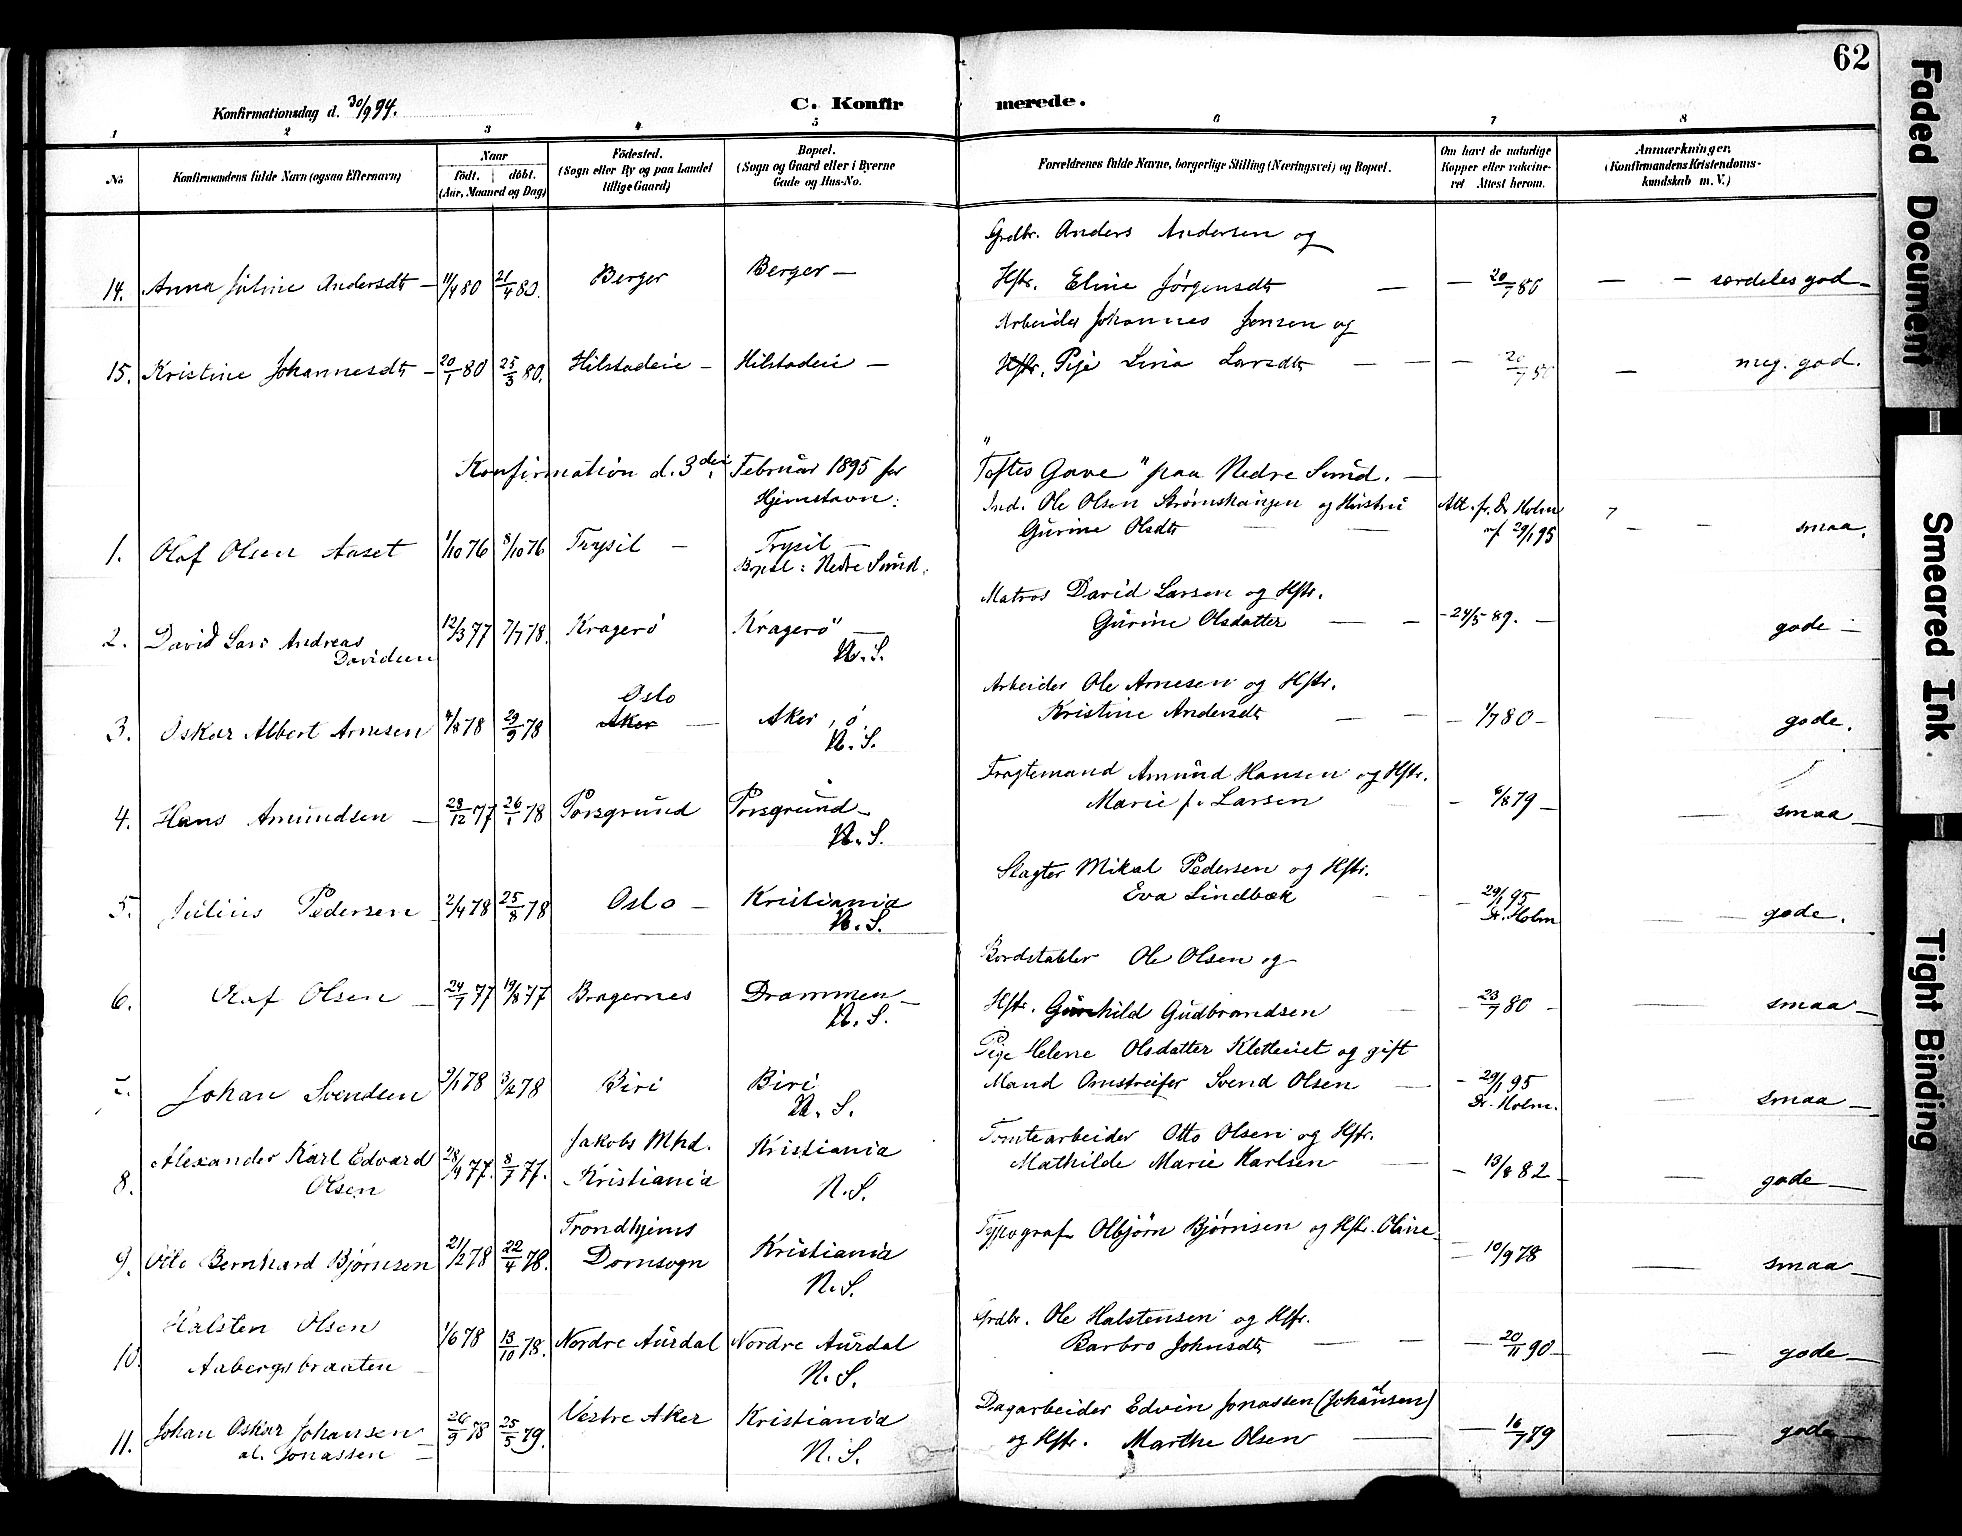 62
Konfirmationsdag d. 30/9 94.
C. Konfirmerede.
1 2 3 4 5 6 7 8
No
Konfirmandens fulde Navn (ogsaa Efternavn)
Naar
født. døbt.
(Aar, Maaned og Dag)
Fødested.
(Sogn eller By og paa Landet
tillige Gaard)
Bopæl.
(Sogn og Gaard eller i Byerne
Gade og Hus-No.
Forældrenes fulde Navne, borgerlige Stilling (Næringsvei) og Bopæl.
Om havt de naturlige
Kopper eller vakcine-
ret Attest herom.
Anmærkninger.
(Konfirmandens Kristendoms-
kundskab m. V.)
Grdbr. Anders Andersen og
14. Anna Juline Andersdtr – 11/4 80 21/4 80. Berger Berger – Hstr. Eline Jørgensdtr — — 20/7 86 — særdeles god –
Arbeider Johannes Jensen og
15. Kristine Johannesdtr – 20/1 80 25/3 80. Hilstadeie – Hilstadeie – Pige Lina Larsdtr — — 20/7 — meg. god.
Konfirmation d. 3die Februar 1895 for "Toftes Gave" paa Nedre Sund. —
Hjemstavn:
Ind. Ole Olsen Strømskangen og Hustru
1. Olaf Olsen Aaset 1/10 76 8/10 76 Trysil – Trysil – Gurine Olsdtr — Att. fr. Dr Holm
af 29/1 95 — smaa.
Bopæl: Nedre Sund.
Matros David Larsen og Hstr.
2. David Lars Andreas
Davidsen 12/3 77 7/7 78. Kragerö Kragerö –
N. S. Gurine Olsdatter — 24/5 89. — gode –
Arbeider Ole Arnesen og Hstr.
3. Oskar Albert Arnesen 4/8 78 29/9 78 Oslo
Aker – Aker, ö.
N. S. Kristine Andersdtr — 1/7 80 – gode.
Fragtemand Amund Hansen og Hstr.
4. Hans Amundsen – 28/12 77 26/1 78 Porsgrund Porsgrund –
N. S. Marie f. Larsen — 6/8 79 – smaa –
Slagter Mikal Pedersen og Hstr.
5. Julius Pedersen – 2/4 78 25/8 78 Oslo – Kristiania
N. S. Eva Lindbæk — 29/1 95
Dr. Holm — gode.
Bordstabler Ole Olsen og
6. Olaf Olsen – 24/7 77 19/8 77 Bragernes Drammen –
N. S. Hstr. Gunhild Gudbrandsen — 23/7 80 – smaa –
Pige Helene Olsdatter Kletteiet og gift
7. Johan Svendsen 2/1 78 3/2 78 Biri Biri
N. S. Mand Omstreifer Svend Olsen — 29/1 95
Dr. Holm. — smaa –
Tomtearbeider Otto Olsen og Hstr.
8. Alexander Karl Edvard
Olsen 28/4 77. 8/7 77. Jakobs Mhd.
Kristiania Kristiania
N. S. Mathilde Marie Karlsen — 13/8 82 – gode –
9. Otto Bernhard Bjørnsen 21/2 78 22/4 78. Trondhjems
Domsogn Kristiania
N. S. Typograf Olbjörn Bjørnsen og Hstr. Oline — 10/9 78 — smaa –
Grdbr. Ole Halstensen og Hstr.
10. Halsten Olsen
Aabergsbraaten – 1/6 78 13/10 78. Nordre Aurdal Nordre Aurdal
N. S. Barbro Johnsdtr — 20/11 90 – gode –
Dagarbeider Edvin Jonassen (al. Johansen)
11. Johan Oskar Johansen
al. Jonassen – 26/9 78 25/5 79. Vestre Aker Kristiania
N. S. og Hstr. Marthe Olsen — 16/7 89 — gode –
Faded Document
Smeared Ink
Tight Binding